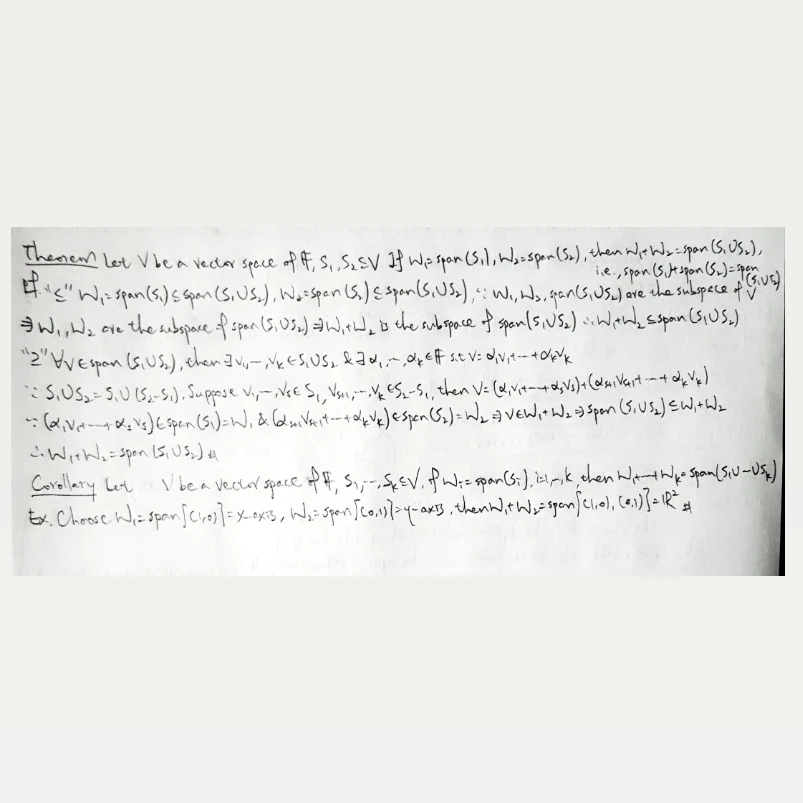 Theorem Let V be a vector space of F, S₁, S₂ ⊆ V If W₁ = span(S₁), W₂ = span(S₂), then W₁+W₂ = span(S₁∪S₂),
i.e., span(S₁)+span(S₂) = span(S₁∪S₂)
pf. "≤" W₁ = span(S₁) ⊆ span(S₁∪S₂), W₂ = span(S₂) ⊆ span(S₁∪S₂), ∵ W₁, W₂, span(S₁∪S₂) are the subspace of V
⇒ W₁, W₂ are the subspace of span(S₁∪S₂) ⇒ W₁+W₂ is the subspace of span(S₁∪S₂) ∴ W₁+W₂ ⊆ span(S₁∪S₂)
"≥" ∀v ∈ span(S₁∪S₂), then ∃ v₁, ⋯, vₖ ∈ S₁∪S₂ & ∃ α₁, ⋯, αₖ ∈ F s.t v = α₁v₁+⋯+αₖvₖ
∵ S₁∪S₂ = S₁∪(S₂-S₁), Suppose v₁, ⋯, vₛ ∈ S₁, vₛ₊₁, ⋯, vₖ ∈ S₂-S₁, then v = (α₁v₁+⋯+αₛvₛ)+(αₛ₊₁vₛ₊₁+⋯+αₖvₖ)
∵ (α₁v₁+⋯+αₛvₛ) ∈ span(S₁) = W₁ & (αₛ₊₁vₛ₊₁+⋯+αₖvₖ) ∈ span(S₂) = W₂ ⇒ v ∈ W₁+W₂ ⇒ span(S₁∪S₂) ⊆ W₁+W₂
∴ W₁+W₂ = span(S₁∪S₂) #
Corollary Let V be a vector space of F, S₁, ⋯, Sₖ ⊆ V. If Wᵢ = span(Sᵢ), i=1, ⋯, k, then W₁+⋯+Wₖ = span(S₁∪⋯∪Sₖ)
Ex. Choose W₁ = span{(1,0)} = x-axis, W₂ = span{(0,1)} = y-axis, then W₁+W₂ = span{(1,0), (0,1)} = ℝ² #